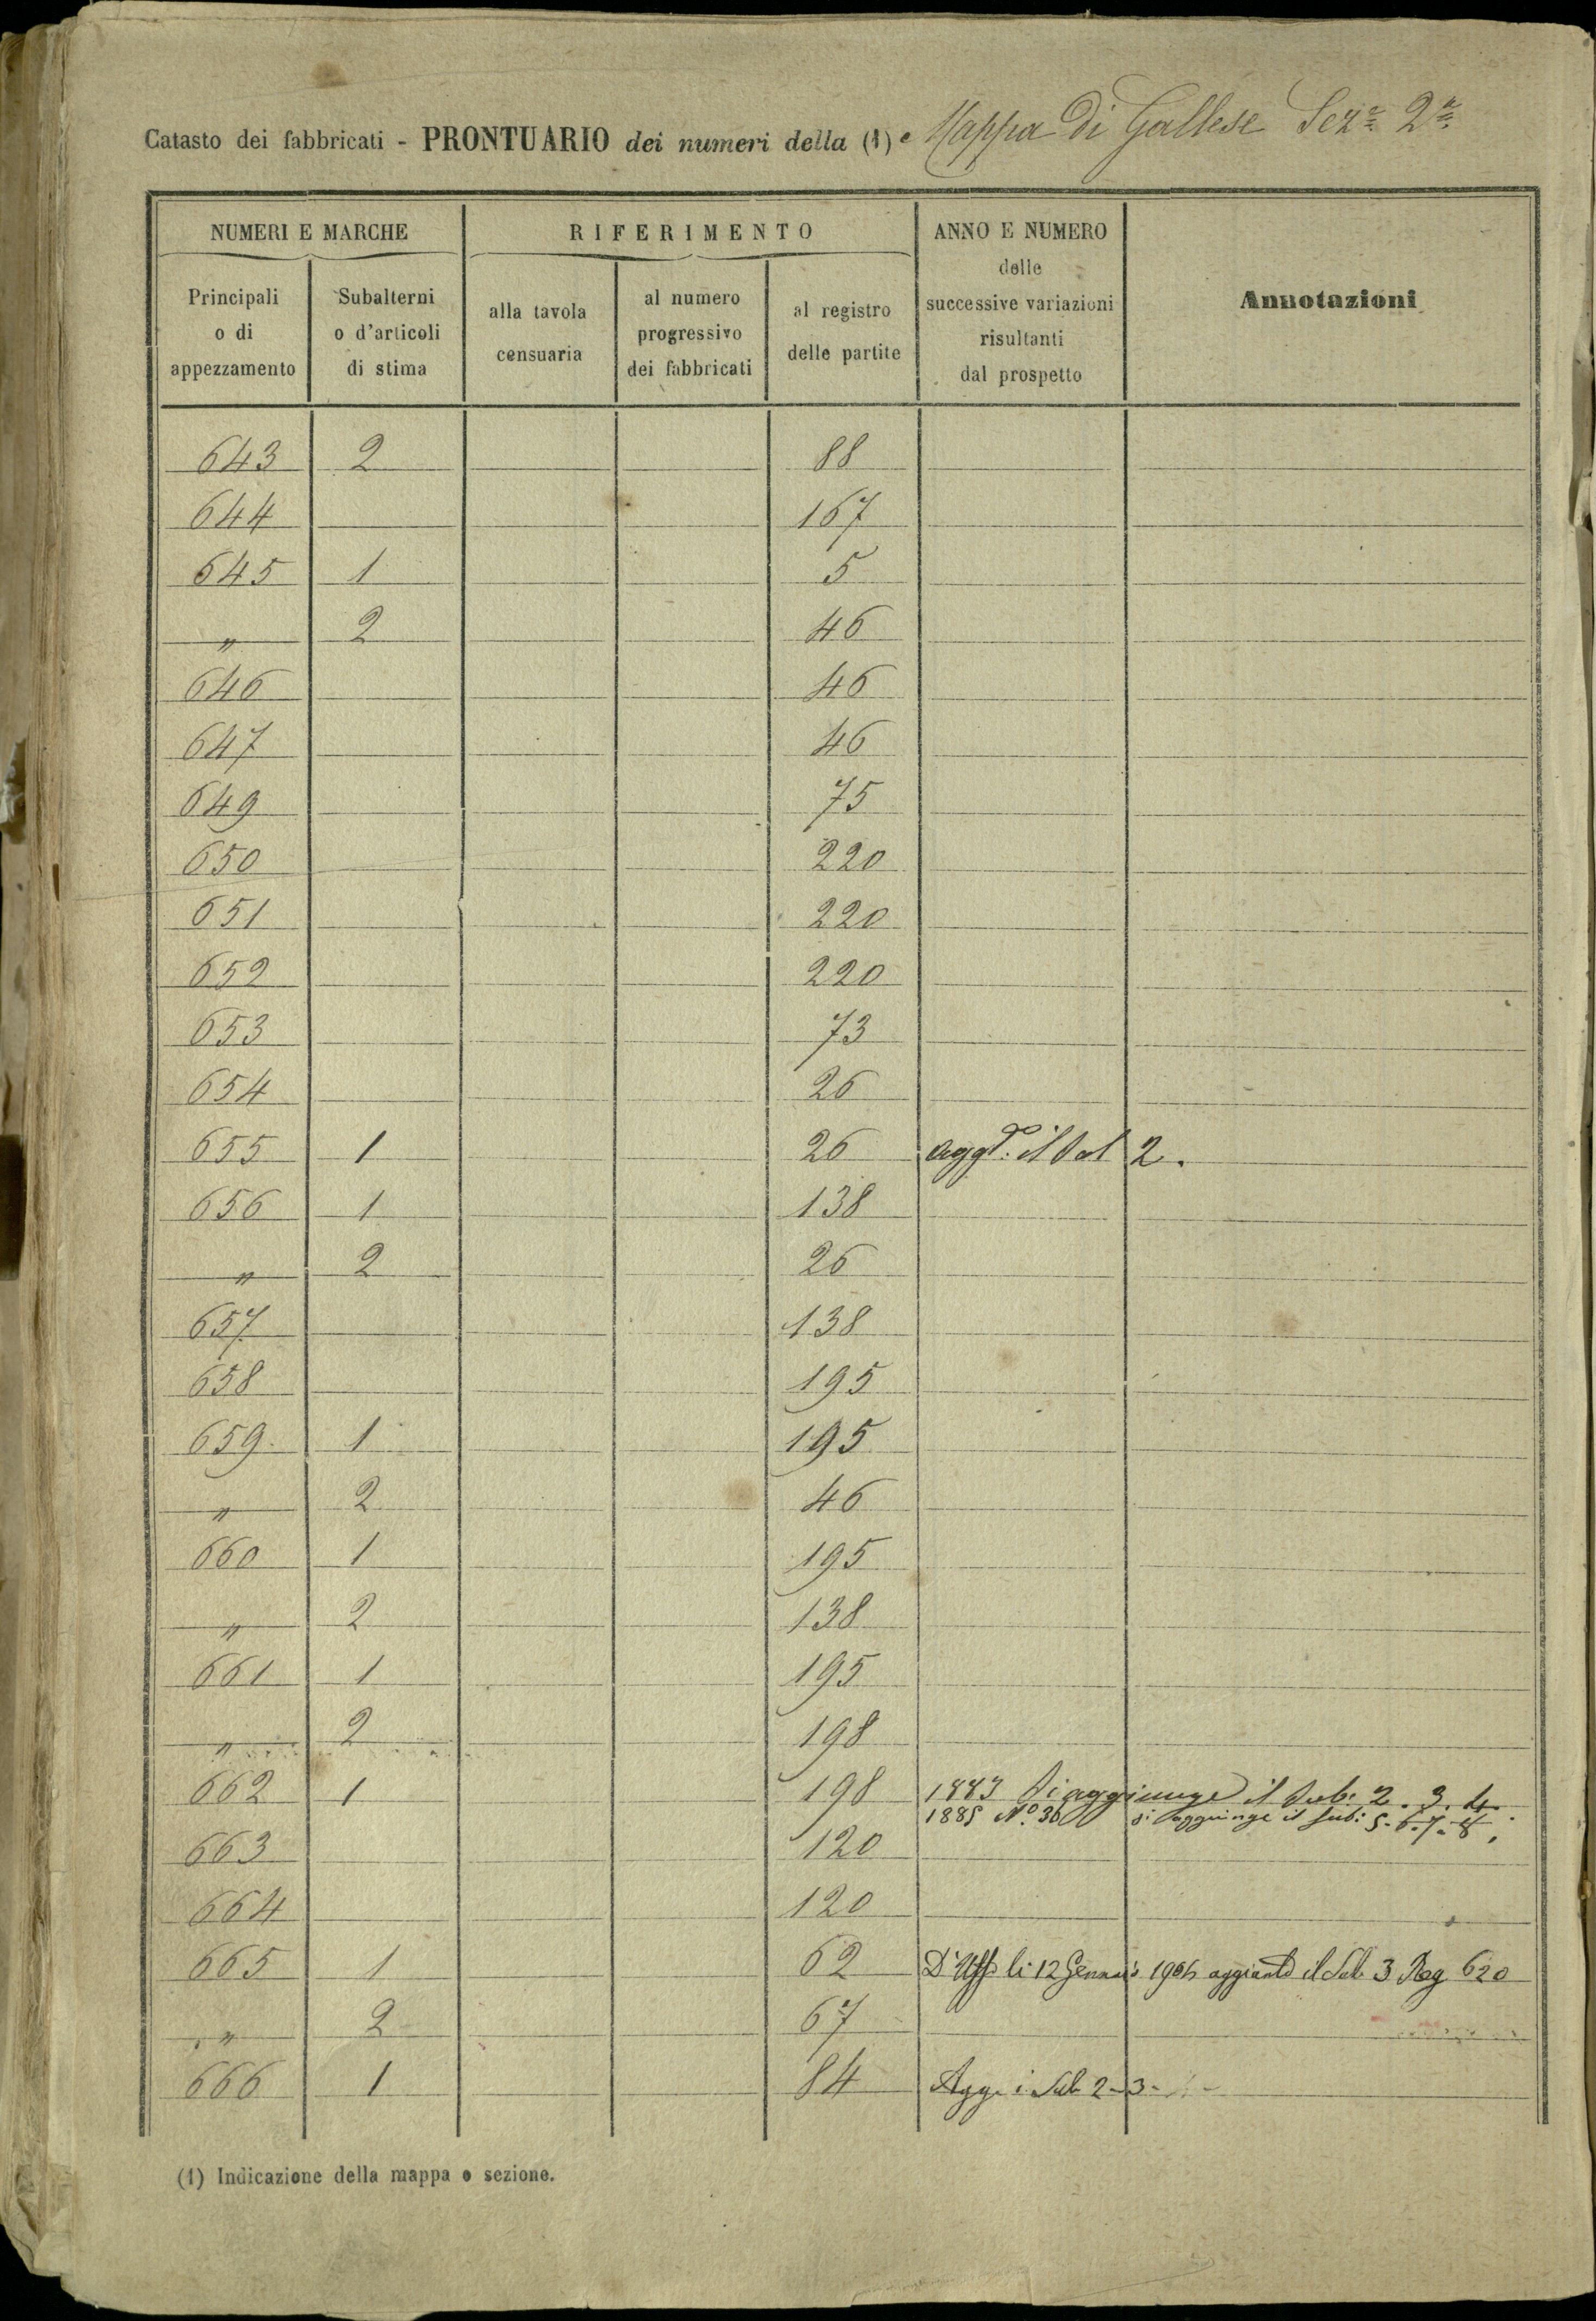 Catasto dei fabbricati - PRONTUARIO dei numeri della (1) Mappa Di Gallese Sez.e 2.a
NUMERI E MARCHE RIFERIMENTO ANNO E NUMERO delle successive variazioni risultanti dal prospetto Annotazioni
Principali o di appezzamento Subalterni o d'articoli di stima alla tavola censuaria al numero progressivo dei fabbricati al registro delle partite
643 2 88
644 167
645 1 5
" 2 46
646 46
647 46
649 75
650 220
651 220
652 220
653 73
654 26
655 1 26 aggto. il Sub 2.
656 1 138
" 2 26
657 138
658 195
659 1 195
" 2 46
660 1 195
" 2 138
661 1 195
" 2 198
662 1 198 1883 Si aggiunge il Sub: 2. 3. 4.
1885 No. 36 si aggiunge il sub: 5. 6. 7. 8.
663 120
664 120
665 1 62 D'Uffo li 12 Gennaio aggiunto il Sub 3 Reg 620
" 2 67
666 1 84 Agg. i Sub 2-3-
(1) Indicazione della mappa o sezione.